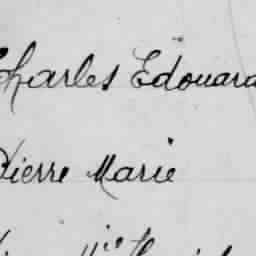 Charles Edouard
Pierre Marie